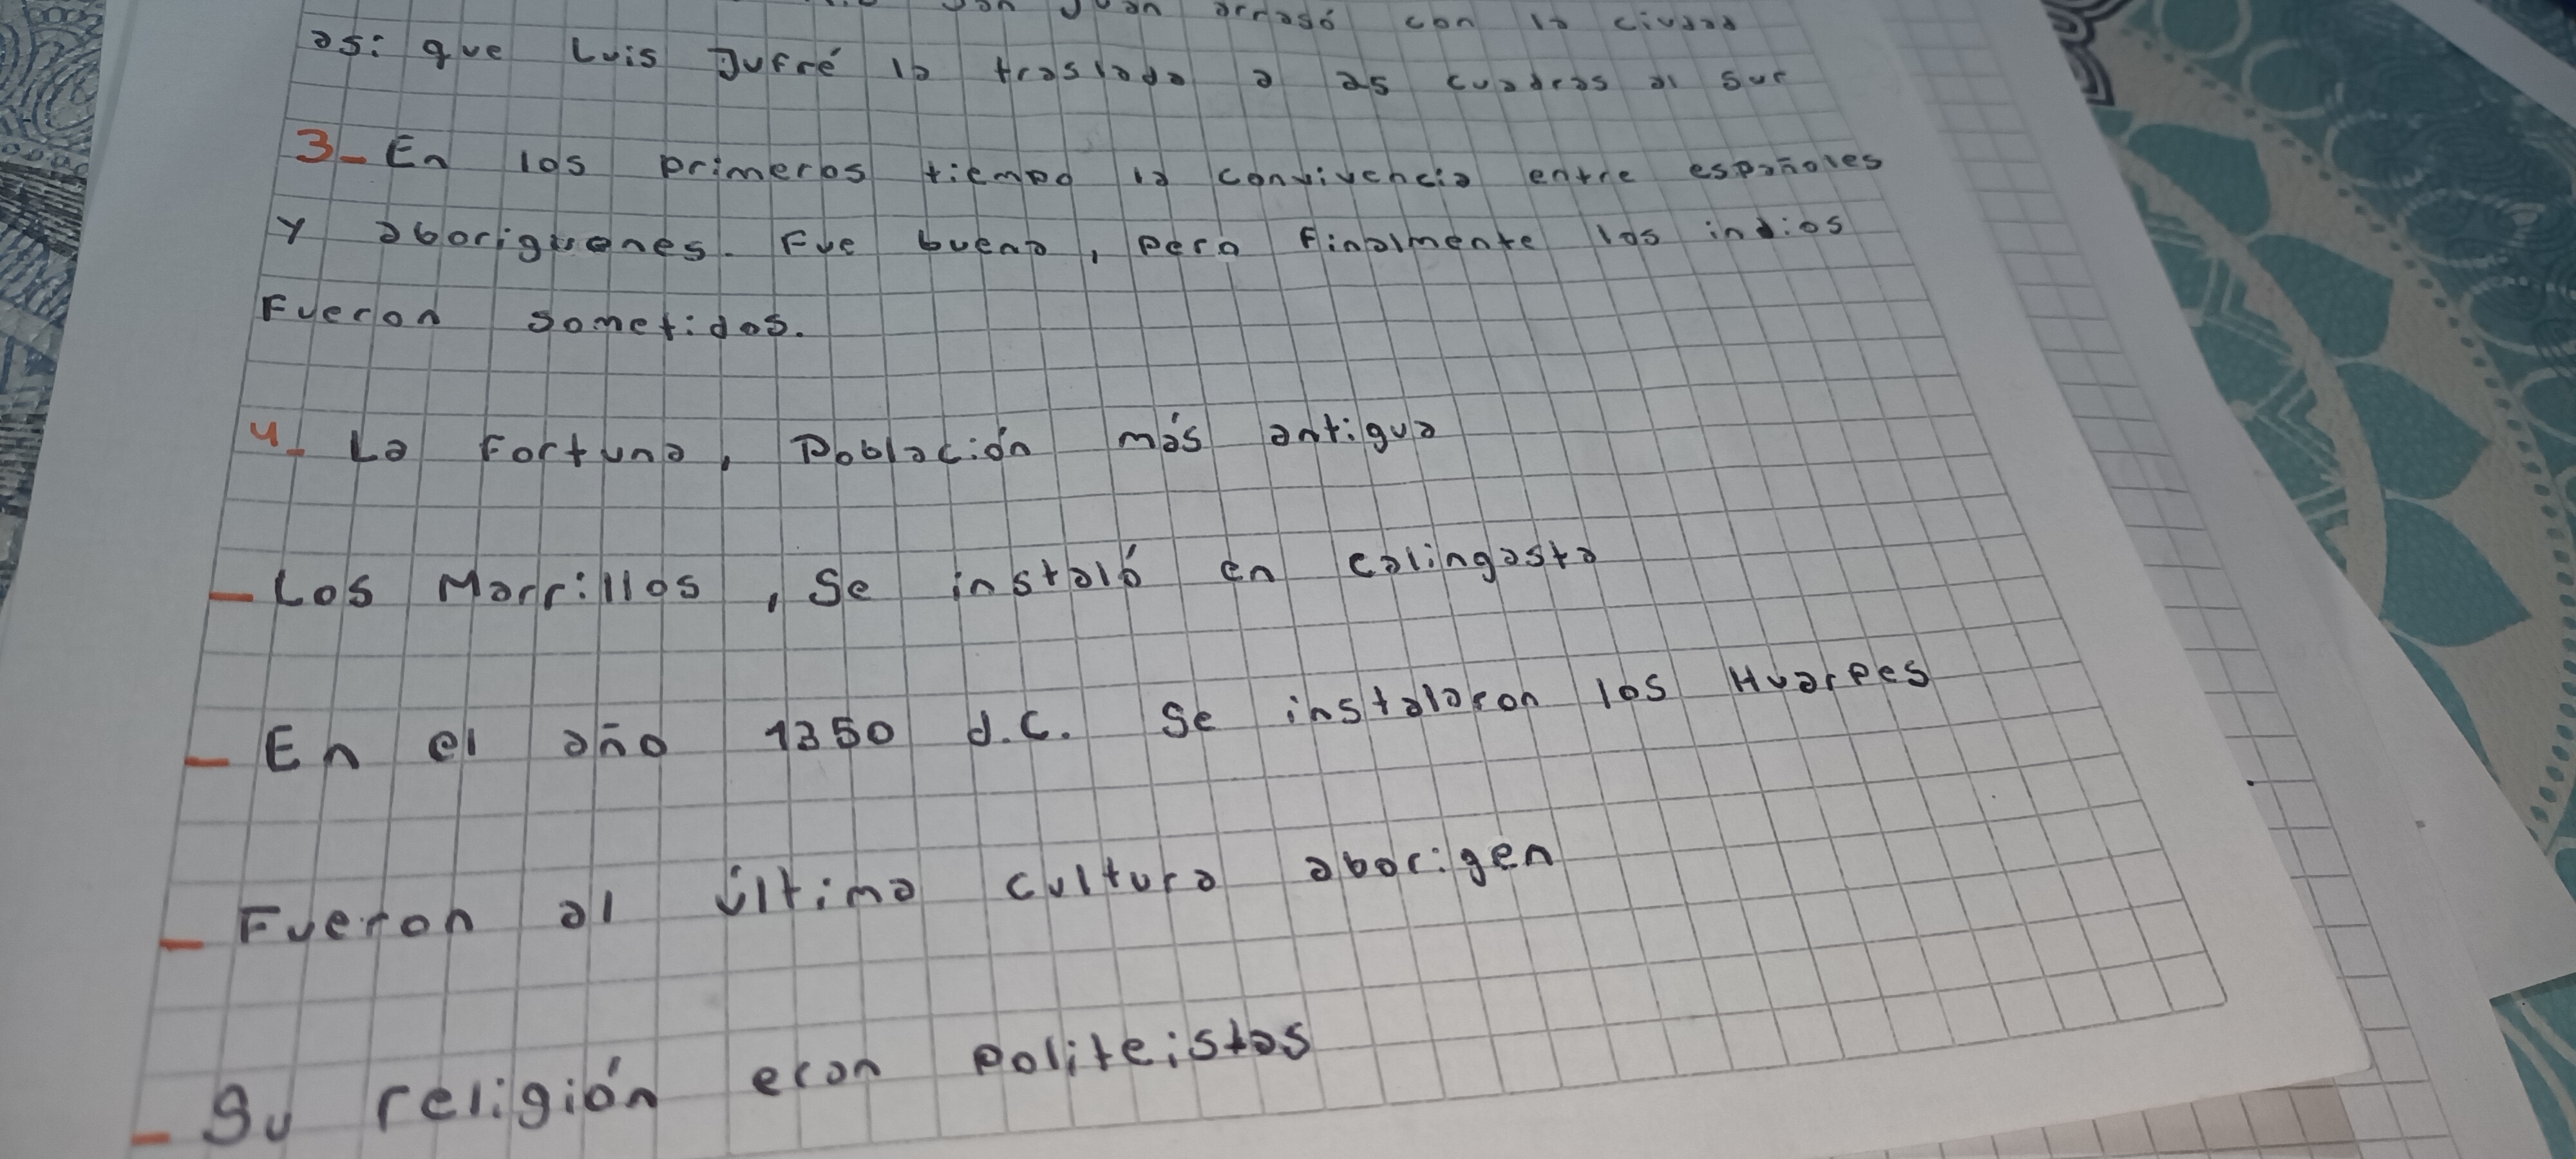 Juan arrasó con la ciudad
asi que Luis Jufré la traslada a 25 cuadras al sur
3- En los primeros tiempo la convivencia entre españoles
y aboriguenes. Fue buena, pero finalmente los indios
Fueron sometidos.
4- La Fortuna, Población más antigua
- Los Morrillos, Se instaló en calingasta
- En el año 1350 d.C. Se instalaron los Huarpes
- Fueron al última cultura aborigen
- Su religión eran politeistas